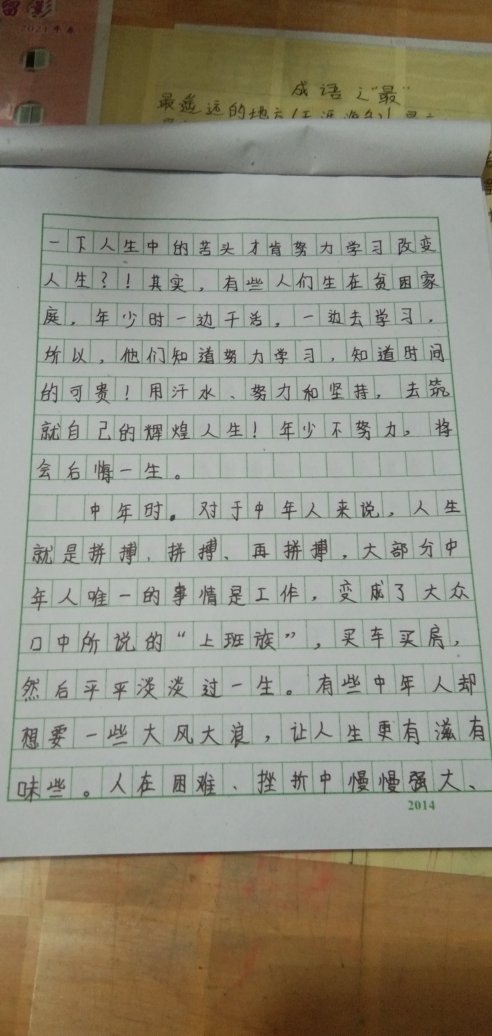 留影
2021年春
成语之"最"
最遥远的地方(天涯海角)
一下人生中的苦头才肯努力学习改变
人生?!其实,有些人们生在贫困家
庭,年少时一边干活,一边去学习,
所以,他们知道努力学习,知道时间
的可贵!用汗水、努力和坚持,去筑
就自己的辉煌人生!年少不努力,将
会后悔一生。
中年时。对于中年人来说,人生
就是拼搏、拼搏、再拼搏,大部分中
年人唯一的事情是工作,变成了大众
口中所说的“上班族”,买车买房,
然后平平淡淡过一生。有些中年人却
想要一些大风大浪,让人生更有滋有
味些。人在困难、挫折中慢慢强大、
2014